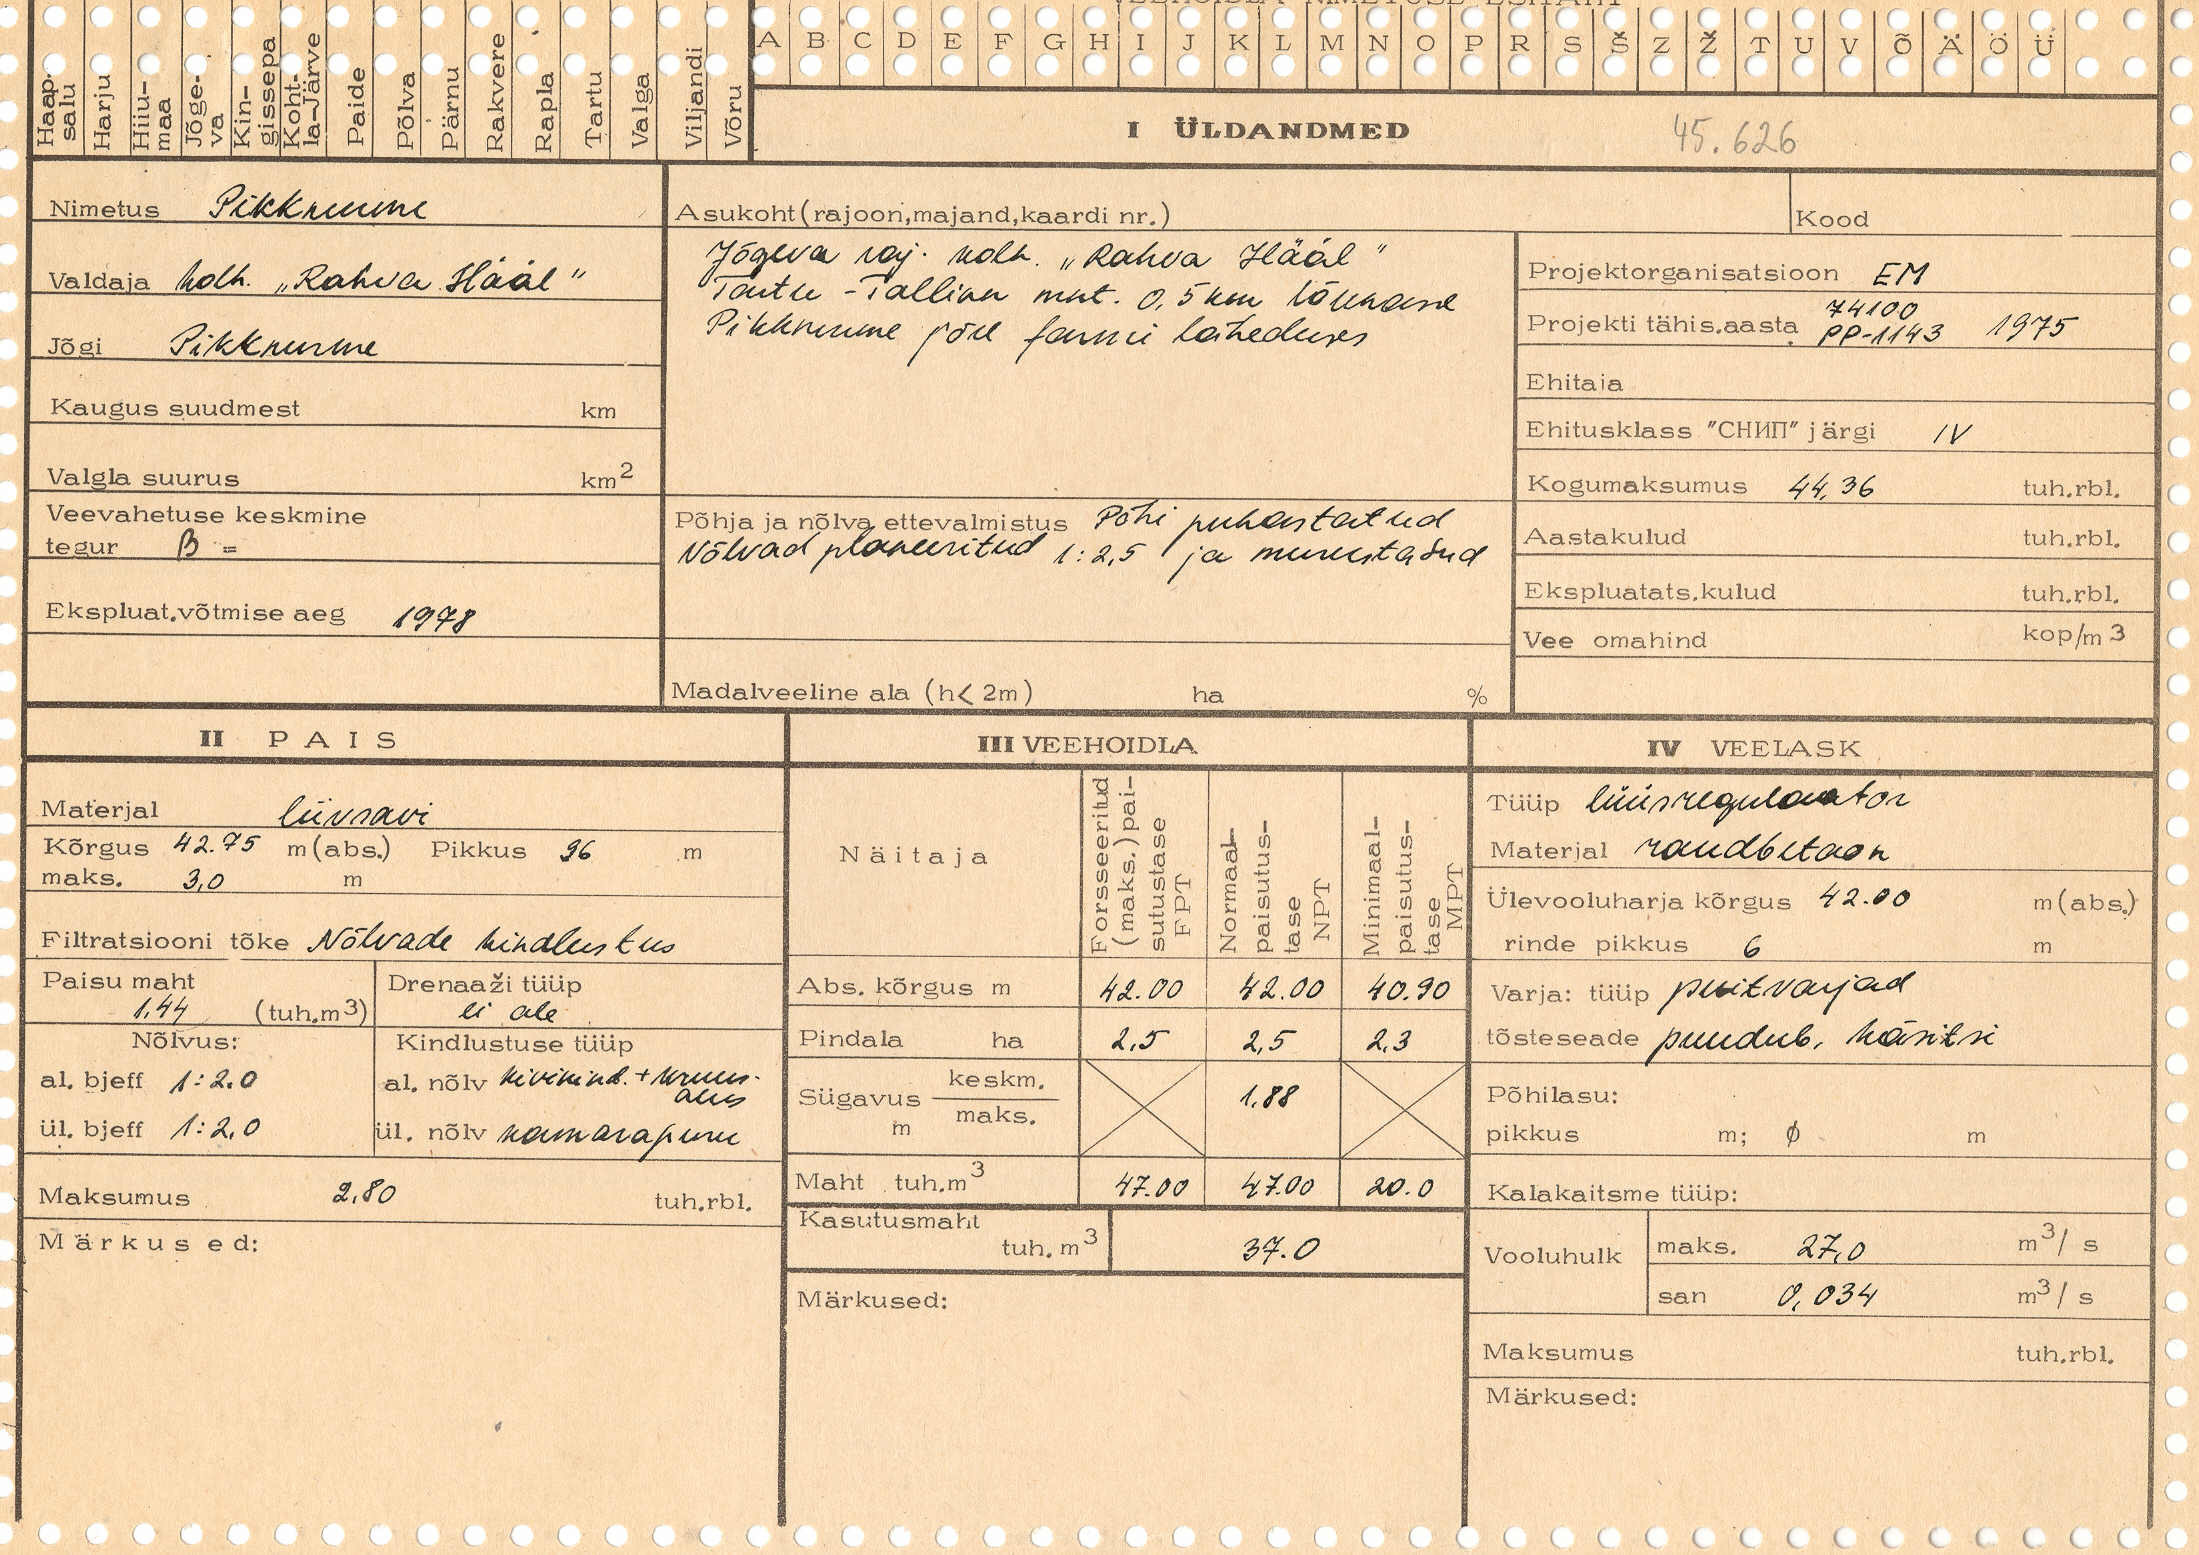 VEEHOIDLA NIMETUSE ESITÄHT
A B C D E F G H I J K L M N O P R S Š Z Ž T U V Õ Ä Ö Ü
Haap-
salu
Harju
Hiiu-
maa
Jõge-
va
Kin-
gissepa
Koht-
la-Järve
Paide
Põlva
Pärnu
Rakvere
Rapla
Tartu
Valga
Viljandi
Võru
I ÜLDANDMED 45.626
Nimetus Pikknurme
Valdaja kolh. „Rahva Hääl"
Jõgi Pikknurme
Kaugus suudmest km
Valgla suurus km2
Veevahetuse keskmine
tegur β =
Ekspluat.võtmise aeg 1978
Asukoht(rajoon,majand,kaardi nr.)
Jõgeva raj. kolh. „Rahva Hääl"
Tartu-Tallinn mnt. 0,5 km lõunasse
Pikknurme jõel farmi läheduses
Põhja ja nõlva ettevalmistus Põhi puhastatud
Nõlvad planeeritud 1:2,5 ja murustatud
Madalveeline ala (h< 2m) ha %
Kood
Projektorganisatsioon EM
74100
Projekti tähis.aasta PP-1143 1975
Ehitaja
Ehitusklass "СНИП" järgi IV
Kogumaksumus 44,36 tuh.rbl.
Aastakulud tuh.rbl.
Ekspluatats.kulud tuh.rbl.
Vee omahind kop/m3
II PAIS
Materjal liivsavi
Kõrgus 42.75 m(abs.) Pikkus 96 m
maks. 3,0 m
Filtratsiooni tõke Nõlvade kindlustus
Paisu maht
1.44 (tuh.m3)
Drenaaži tüüp
ei ole
Nõlvus:
al. bjeff 1:2.0
ül. bjeff 1:2,0
Kindlustuse tüüp
al. nõlv kivikind. + kruus-
alus
ül. nõlv kamarapuru
Maksumus 2,80 tuh.rbl.
Märkused:
III VEEHOIDLA
Näitaja
Forsseeritud
(maks.)pai-
sutustase
FPT
Normaal-
paisutus-
tase
NPT
Minimaal-
paisutus-
tase
MPT
Abs. kõrgus m 42.00 42.00 40.90
Pindala ha 2,5 2,5 2,3
Sügavus keskm. 1,88
m maks.
Maht tuh.m3 47.00 47.00 20.0
Kasutusmaht
tuh. m3 37.0
Märkused:
IV VEELASK
Tüüp lüüsregulaator
Materjal raudbetoon
Ülevooluharja kõrgus 42.00 m(abs.)
rinde pikkus 6 m
Varja: tüüp puitvarjad
tõsteseade puudub, käsitsi
Põhilasu:
pikkus m; ϕ m
Kalakaitsme tüüp:
Vooluhulk maks. 27,0 m3/s
san 0,034 m3/s
Maksumus tuh.rbl.
Märkused: